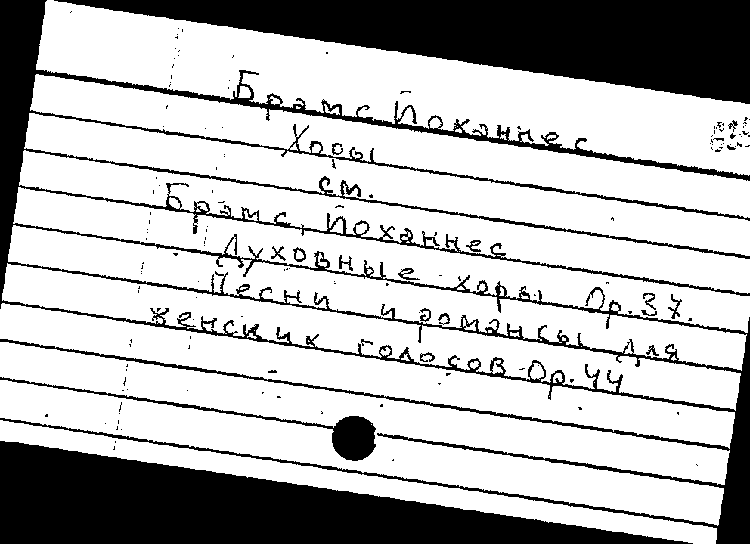 Брамс Йоханнес
Хоры
см.
Брамс, Йоханнес
Духовные хоры Op. 37.
Песни и романсы для
женских голосов Op. 44